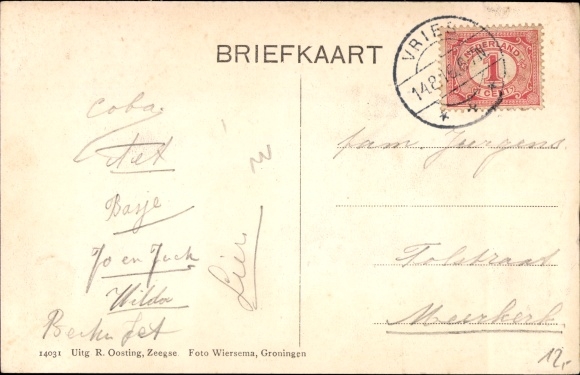 BRIEFKAART
VRIES
NEDERLAND
1
CENT
Coba
Basje
Jo en Juck
Wilda
Lien
fam Jurgens
Tolstraat
Meerkerk
14031 Uitg R. Oosting, Zeegse. Foto Wiersema, Groningen
12,-